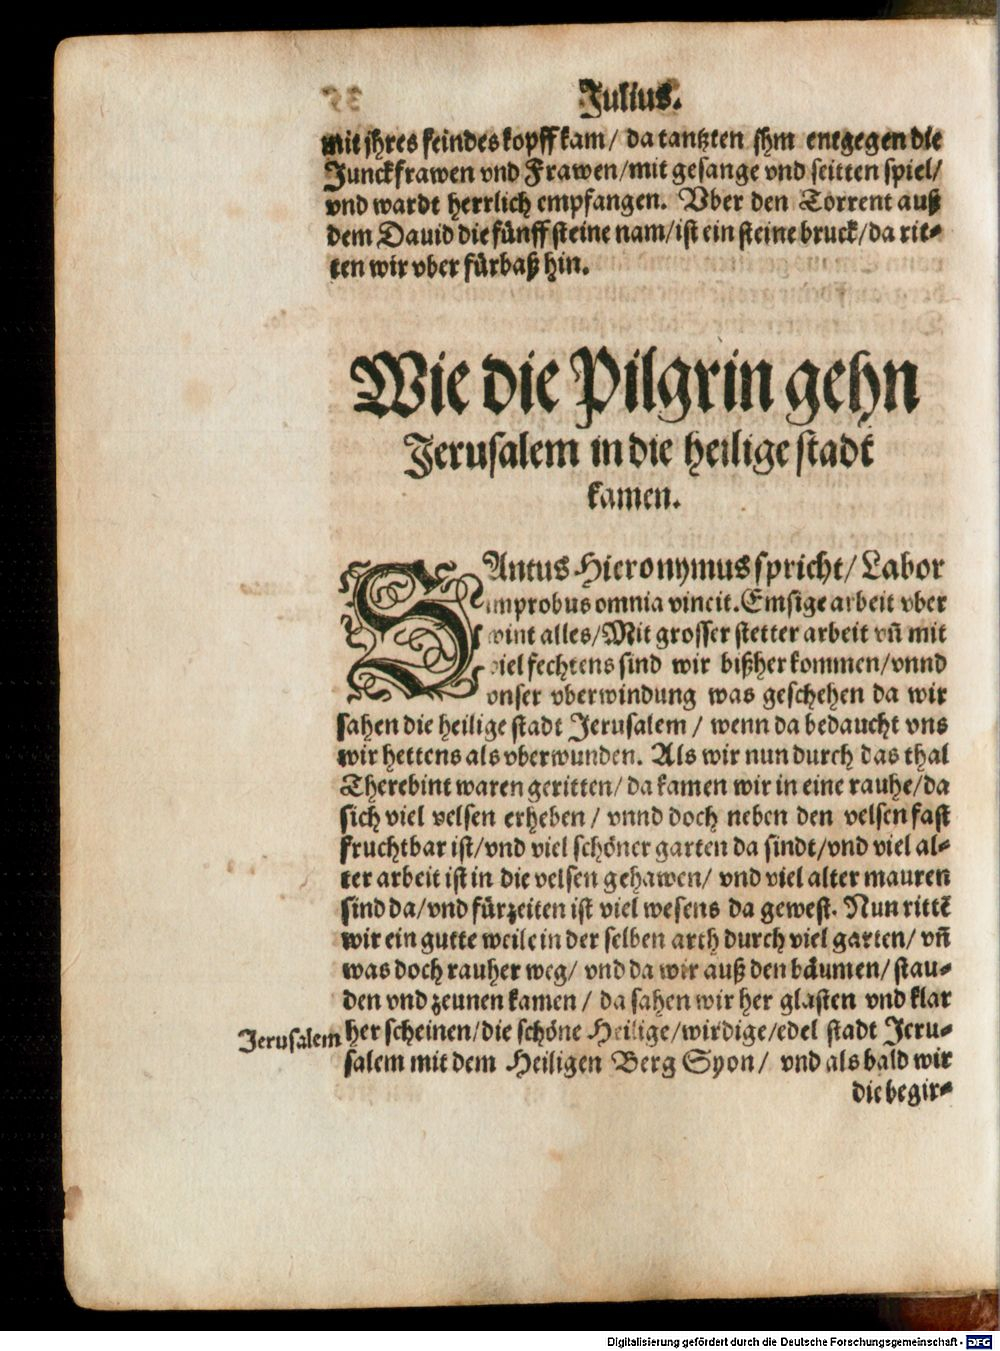 Julius.
mit jhres feindes kopff kam/ da tantzten jhm entgegen die
Junckfrawen vnd Frawen/mit gesange vnd seitten spiel/
vnd wardt herrlich empfangen. Vber den Torrent auß
dem Dauid die fünff steine nam/ist ein steine bruck/da rit-
ten wir vber fürbaß hin.
Wie die Pilgrin gehn
Jerusalem in die heilige stadt
kamen.
SAntus Hieronymus spricht/ Labor
improbus omnia vincit. Emsige arbeit vber
wint alles/Mit grosser stetter arbeit vñ mit
viel fechtens sind wir bißher kommen/vnnd
vnser vberwindung was geschehen da wir
sahen die heilige stadt Jerusalem / wenn da bedaucht vns
wir hettens als vberwunden. Als wir nun durch das thal
Therebint waren geritten/ da kamen wir in eine rauhe/da
sich viel velsen erheben / vnnd doch neben den velsen fast
fruchtbar ist/vnd viel schöner garten da sindt/vnd viel al-
ter arbeit ist in die velsen gehawen/ vnd viel alter mauren
sind da/vnd fürzeiten ist viel wesens da gewest. Nun rittē
wir ein gutte weile in der selben arth durch viel garten/ vñ
was doch rauher weg/ vnd da wir auß den bäumen/ stau-
den vnd zeunen kamen / da sahen wir her glasten vnd klar
Jerusalem her scheinen/die schöne Heilige/wirdige/edel stadt Jeru-
salem mit dem Heiligen Berg Syon/ vnd als bald wir
die begir-
Digitalisierung gefördert durch die Deutsche Forschungsgemeinschaft - DFG